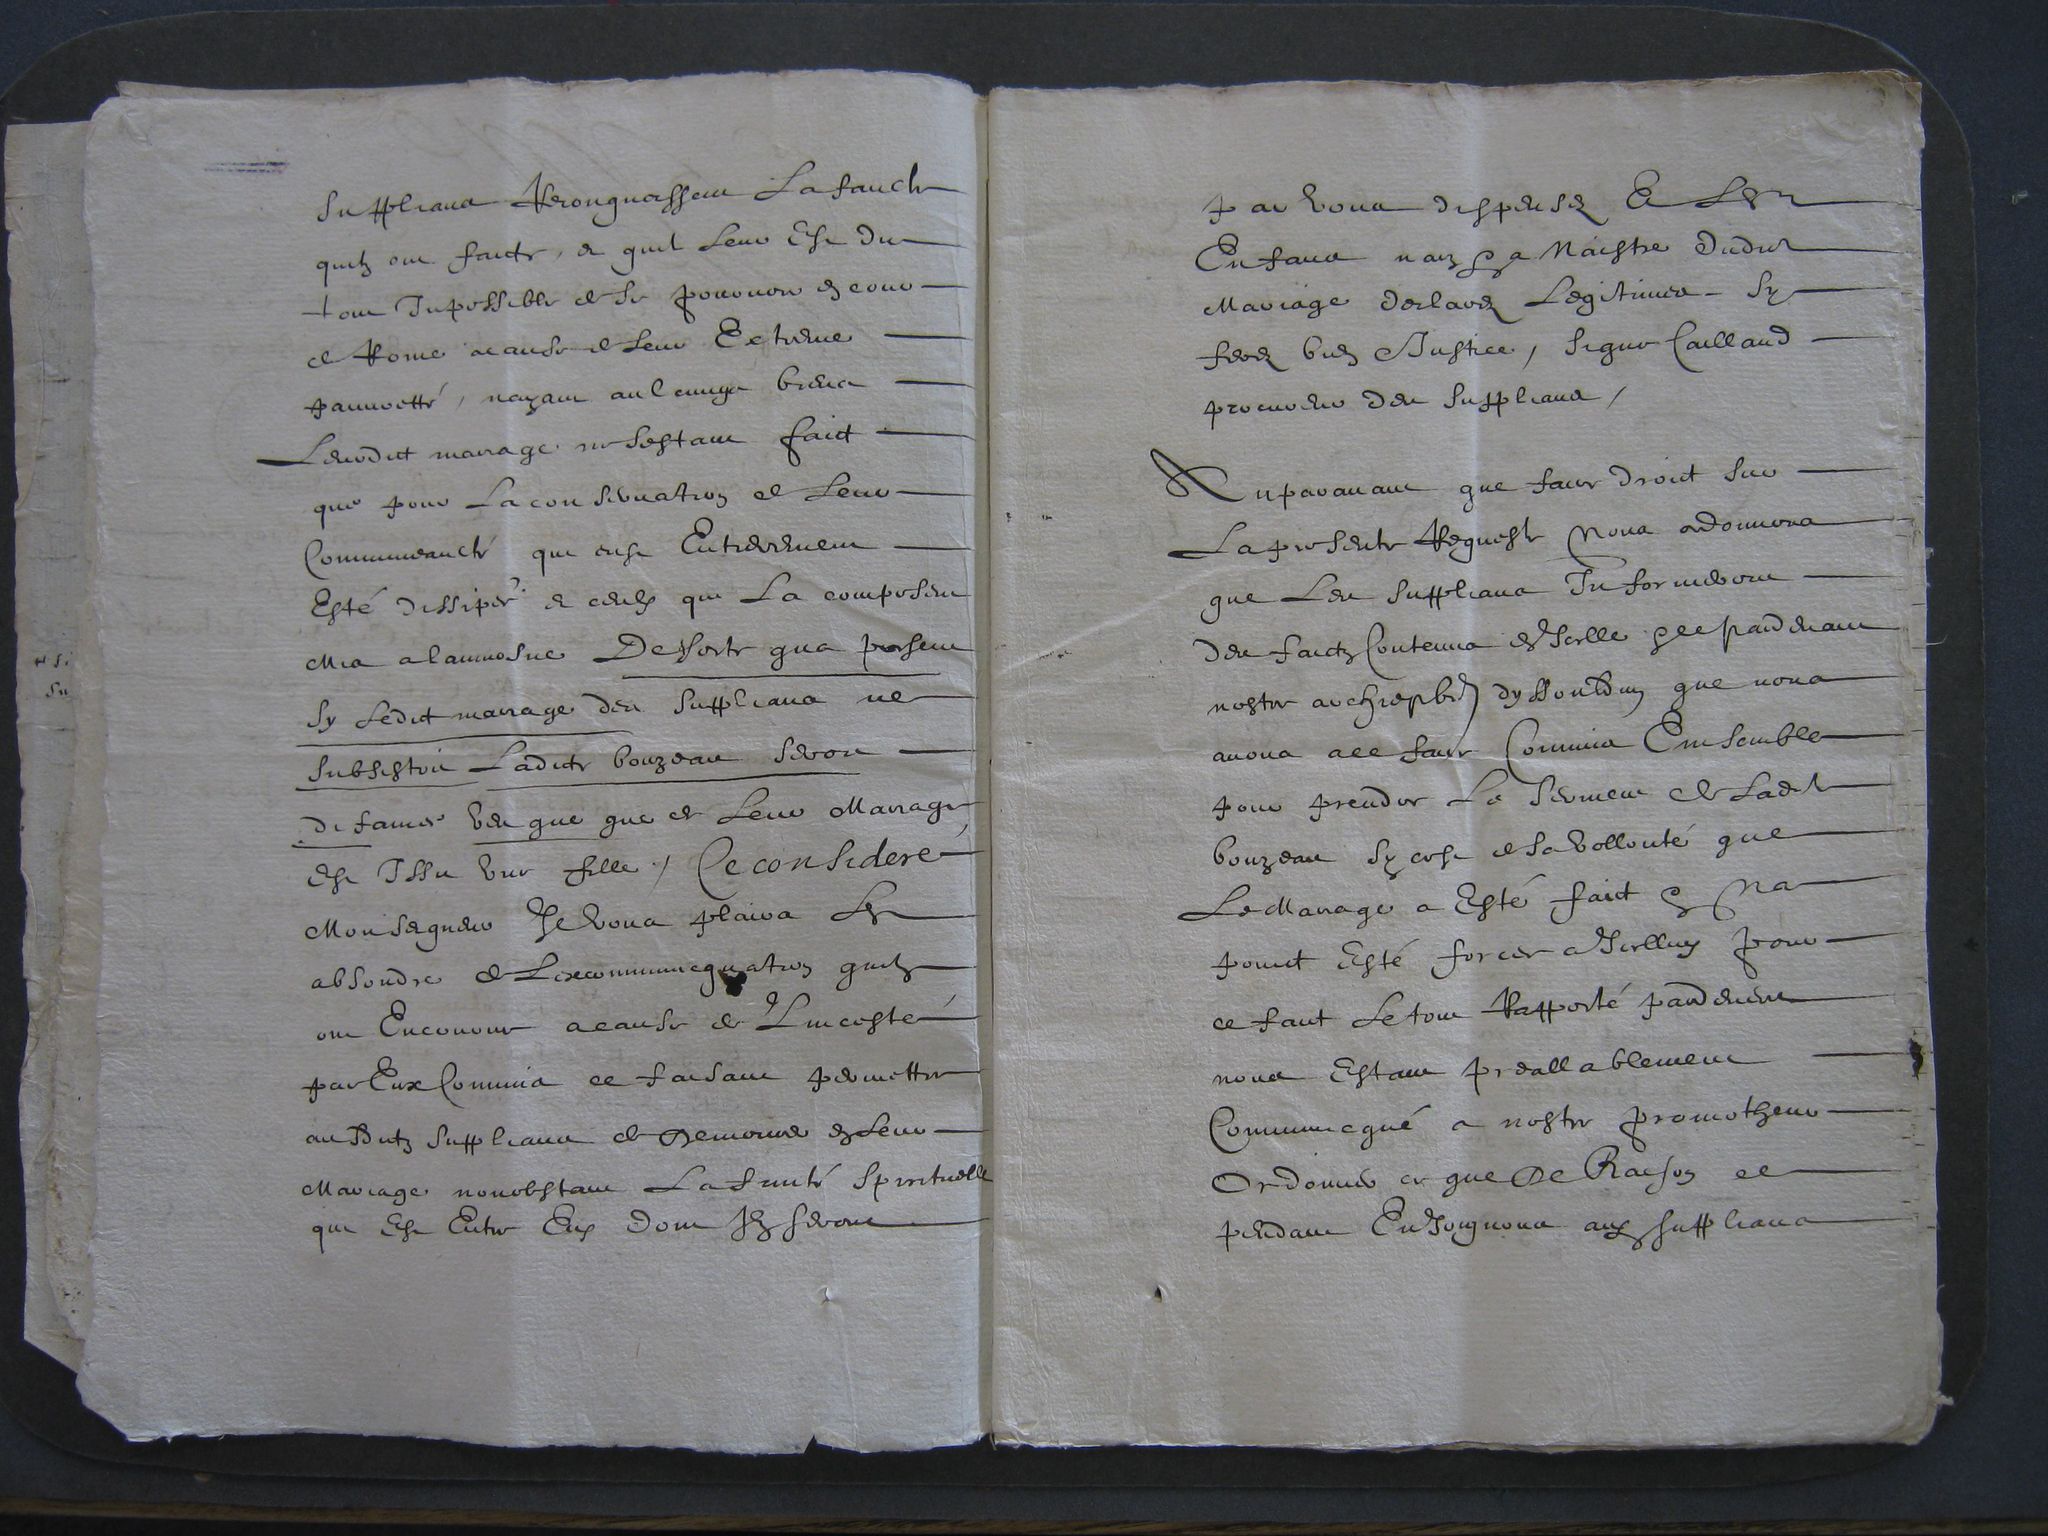 supplians Recongnoissent La faulte
quilz ont faicte, et quil Leur Est du
tout Inpossible de se pouvoir en cour
de Rome a cause de Leur Extreme
pauvretté, nayant aulcungs biens
Leurdict mariage ne sestant faict
que pour La conservation de Leur
Communeaulté qui eust Entierement
Esté dissipée et ceulx qui La composent
Mis a laumosne De sorte qua present
Sy Ledict mariage des supplians ne
subsistoit Ladicte bouzeau seroit
difamée veu que que de Leur Mariage
Est Issu une fille, Ce consideré
Monseigneur Il vous plaira Les
absoudre de Lexcommunicquation quilz
ont Encourue a cause de Linceste
par Eux Commis ce faisant permettre
ausditz supplians de Demourer en Leur
Mariage nonobstant Lafinité spirituelle
qui Est Entre Eux dont Ilz seront
par vous dispensez Et Les
Enfans naiz Et a Naistre dudict
Mariage declarez Legitimes Sy
ferez bien Justice, signé Caillaud
procureur des supplians,
Auparavant que faire droict sur
La presente Requeste Nous ordonnons
que Les supplians Informeront
des faictz Contenus en Icelle par devant
nostre archiprebtre dyssouldun que nous
avons a ce faire Commis Ensemble
pour prendre Le serment de Ladicte
bouzeau sy cest de sa vollonté que
Le Mariage a Esté faict Et Na
poinct Esté forcée a Icelluy pour
ce faict Le tout Rapporté pardevers
nous Estant preallablement
Communicqué a nostre promotheur
Ordonner ce que De Raison ce
pendant Enjoignons aux supplians